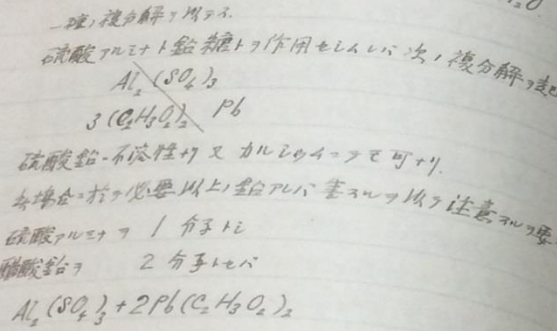 一種ノ複分解ヲ以テス.
硫酸アルミナト鉛糖トヲ作用セシムレバ次ノ複分解ヲ起
Al₂(SO₄)₃
3(C₂H₃O₂)₂ Pb
硫酸鉛ハ不溶性ナリ又カルシウムニテモ可ナリ.
此場合ニ於テ必要以上ノ鉛アレバ害スルヲ以テ注意スルヲ要
硫酸アルミナヲ 1 分子トシ
醋酸鉛ヲ 2 分子トセバ
Al₂(SO₄)₃+2Pb(C₂H₃O₂)₂